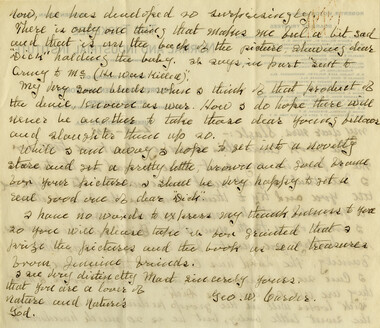 now, he has developed so surprisingly
There is only one thing that makes me feel a bit sad
and that is on the back of the picture showing dear
"Dick" holding the baby. it says, in part "sent to
Army to W (He was killed)".
My very soul bleeds when I think of that product of
the devil, known as war. How I do hope there will
never be another to take those dear young fellows
and slaughter them up so.
While I am away I hope to get into a novelty
store and get a pretty little, brown and gold frame
for your picture. I shall be very happy to get a
real good one of dear "Dick"
I have no words to express my thankfulness to you
so you will please take it for granted that I
prize the pictures and the book as real treasures
from genuine friends.
I see very distinctly Most sincerely yours.
that you are a lover of
nature and nature's Geo. W. Carver.
God.